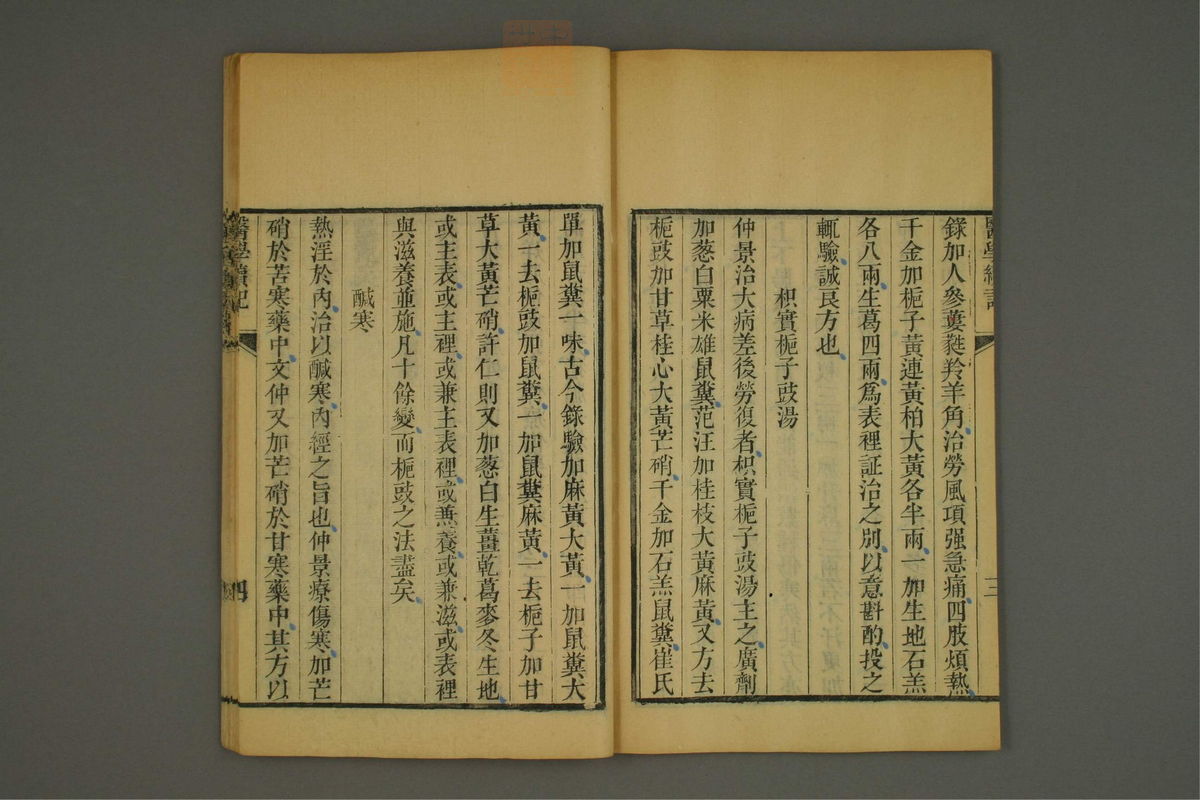 醫學續記
三
錄加人參蔞蕤羚羊角治勞風項强急痛四肢煩熱
千金加梔子黃連黃柏大黃各半兩一加生地石羔
各八兩生葛四兩爲表裡証治之別以意斟酌投之
輒驗誠良方也
枳實梔子豉湯
仲景治大病差後勞復者枳實梔子豉湯主之廣劑
加葱白粟米雄鼠糞范汪加桂枝大黃麻黃又方去
梔豉加甘草桂心大黃芒硝千金加石羔鼠糞崔氏
單加鼠糞一味古今錄驗加麻黃大黃一加鼠糞大
黃一去梔豉加鼠糞一加鼠糞麻黃一去梔子加甘
草大黃芒硝許仁則又加葱白生薑乾葛麥冬生地
或主表或主裡或兼主表裡或兼養或兼滋或表裡
與滋養並施凡十餘變而梔豉之法盡矣
醎寒
熱淫於內治以醎寒內經之旨也仲景療傷寒加芒
硝於苦寒藥中文仲又加芒硝於甘寒藥中其方以
醫學續記
四